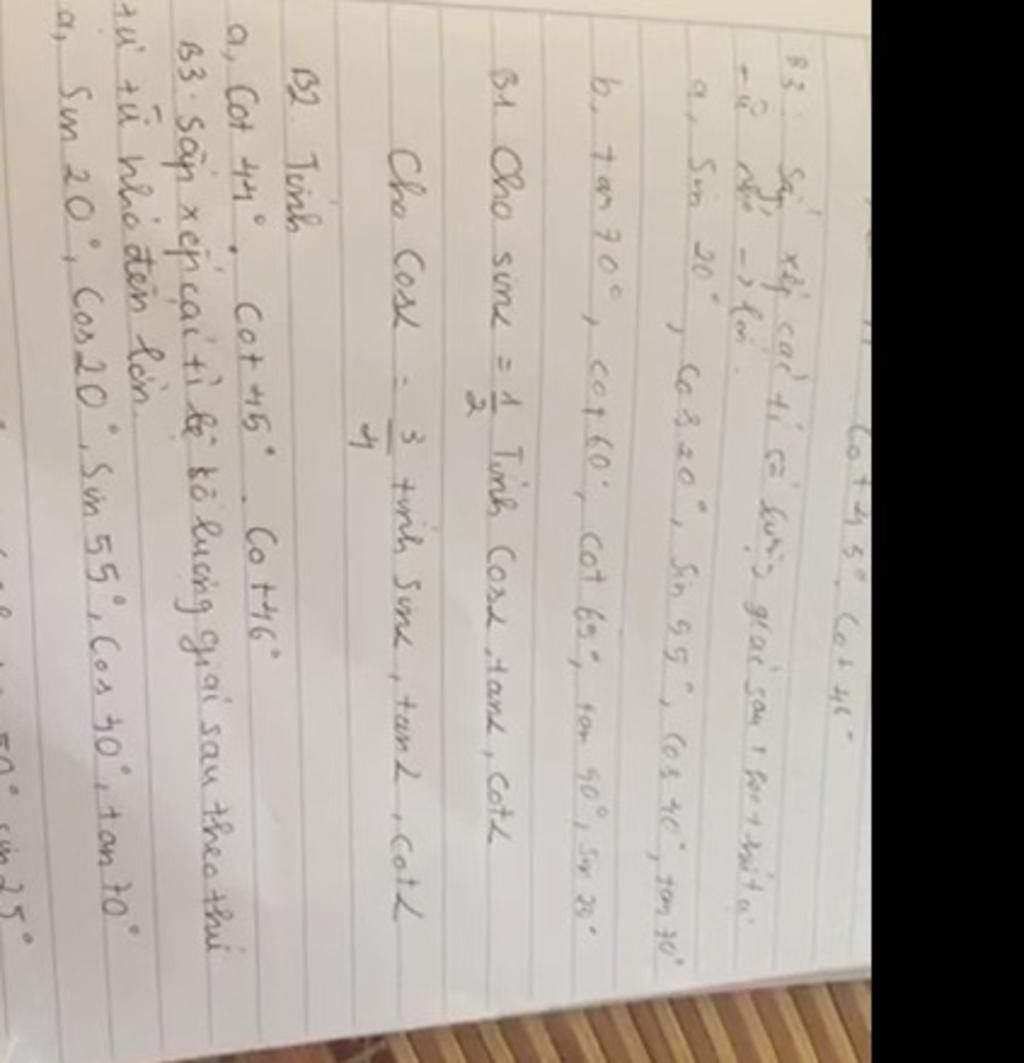 Cot 45°. Cot 46°
B3. Sắp xếp các tỉ số lượng giác sau theo thứ tự
từ nhỏ -> lớn.
a, Sin 20°, cos 20°, Sin 55°, Cos 40°, tan 70°
b, tan 70°, cot 60°, cot 65°, tan 50°, sin 25°
B1. Cho sinα = 1/2 Tính Cosα, tanα, cotα
Cho Cosα = 3/4 tính sinα, tanα, cotα
B2. Tính
a, Cot 44°. Cot 45°. Cot 46°
B3. Sắp xếp các tỉ lệ số lượng giác sau theo thứ
tự từ nhỏ đến lớn.
a, Sin 20°, Cos 20°, Sin 55°, Cos 40°, tan 70°
50° sin 25°